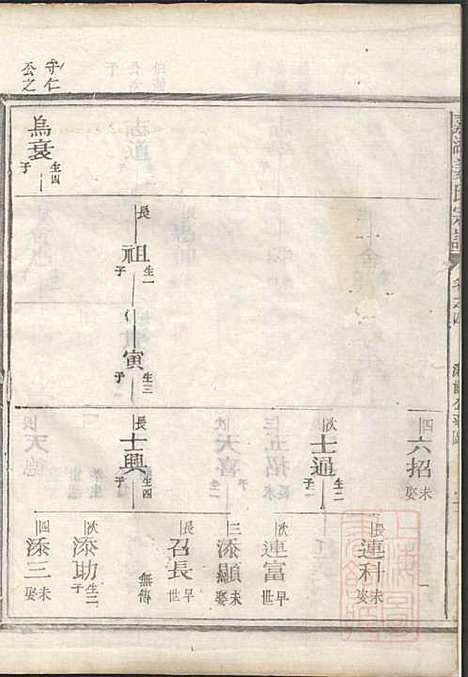 守仁
公之
卷之四
四 六招 未娶
次 士通 生二子
長 連科 未娶
次 連富 早世
烏衰 生四子
長 祖 生一子
仁寅 生三子
長 士興 生四子
長 召長 早世 無傳
次 添助 生二子
三 添顯 未娶
四 添三 未娶